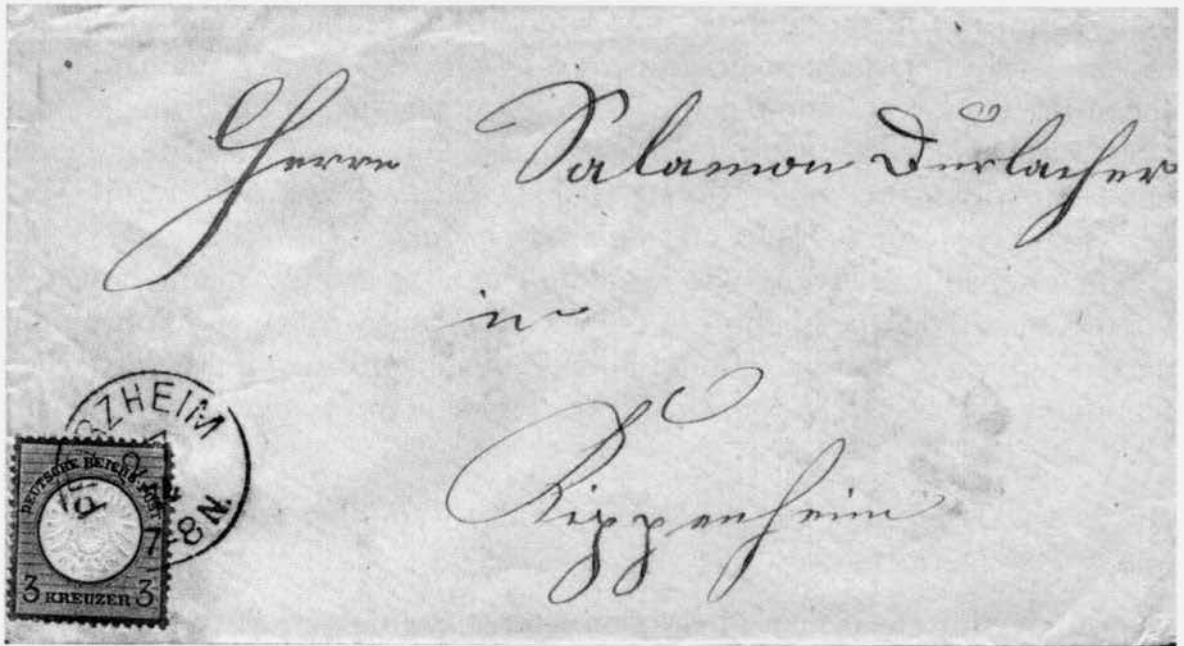 Herrn Salamon Durlacher
in
Kippenheim
PFORZHEIM
7–8 N.
DEUTSCHE REICHS-POST
3 KREUZER 3